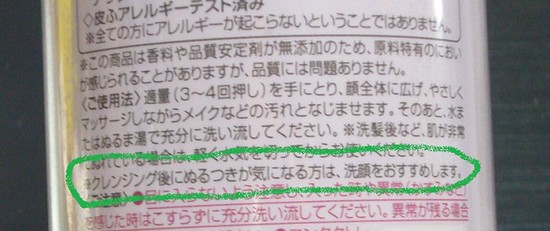 ◇皮ふアレルギーテスト済み
※全ての方にアレルギーが起こらないということではありません。
※この商品は香料や品質安定剤が無添加のため、原料特有のにおい
が感じられることがありますが、品質には問題ありません。
〈ご使用法〉適量(3〜4回押し)を手にとり、顔全体に広げ、やさしく
マッサージしながらメイクなどの汚れとなじませます。そのあと、水ま
たはぬるま湯で充分に洗い流してください。※洗髪後など、肌が非常
にぬれている場合は、軽く水気を切ってからお使いください。
※クレンジング後にぬるつきが気になる方は、洗顔をおすすめします。
●目に入らないよう注意し、入った時や異常
を感じた時はこすらずに充分洗い流してください。異常が残る場合